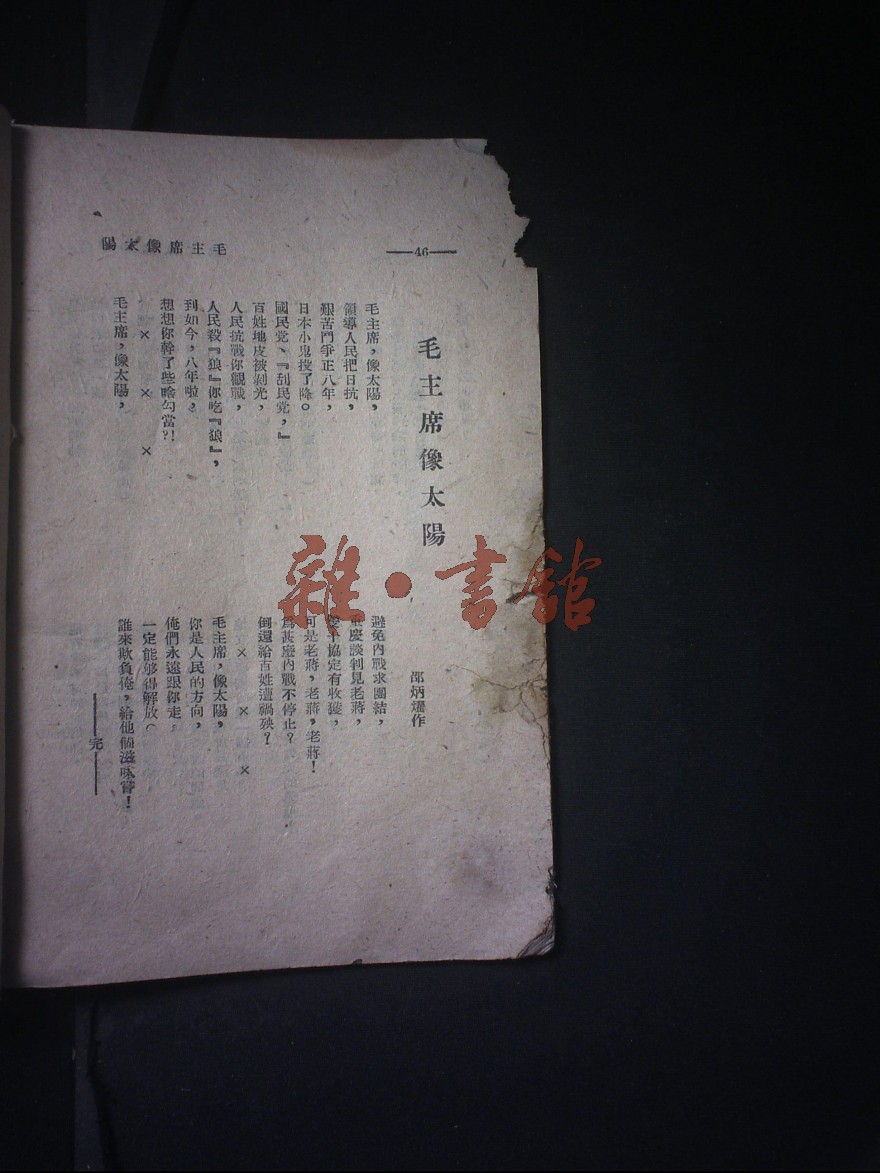 —46—
毛主席像太陽
毛主席像太陽
邵炳燿作
毛主席，像太陽，
領導人民把日抗，
艱苦鬥爭正八年，
日本小鬼投了降。
國民党、『刮民党，』
百姓地皮被剝光，
人民抗戰你觀戰，
人民殺『狼』你吃『狼』，
到如今，八年啦，
想想你幹了些啥勾當？！
× × ×
毛主席，像太陽，
避免內戰求團結，
重慶談判見老蔣，
十協定有收獲，
可是老蔣，老蔣，老蔣！
爲甚麼內戰不停止？
倒還給百姓遭禍殃？
× × ×
毛主席，像太陽，
你是人民的方向，
俺們永遠跟你走，
一定能够得解放。
誰來欺負俺，給他個滋味嘗！
——完——
雜·書館